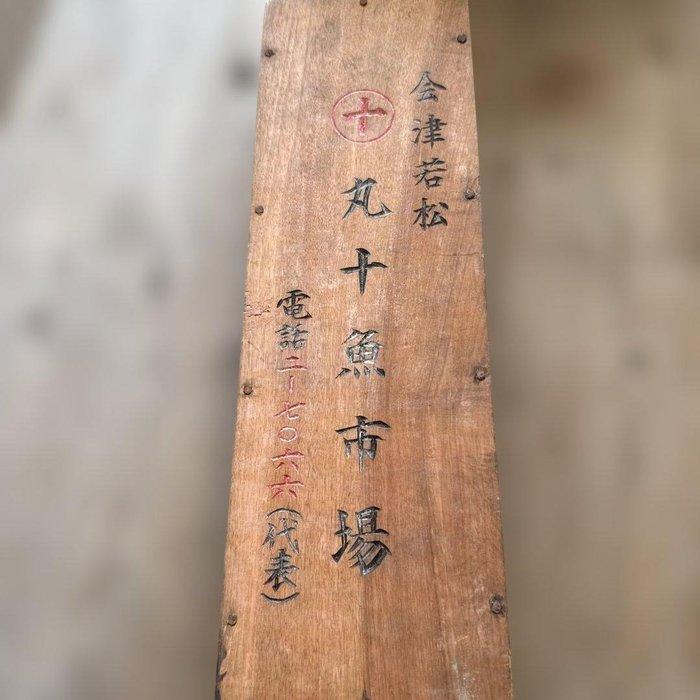 会津若松
十
丸十魚市場
電話二-七〇六六(代表)